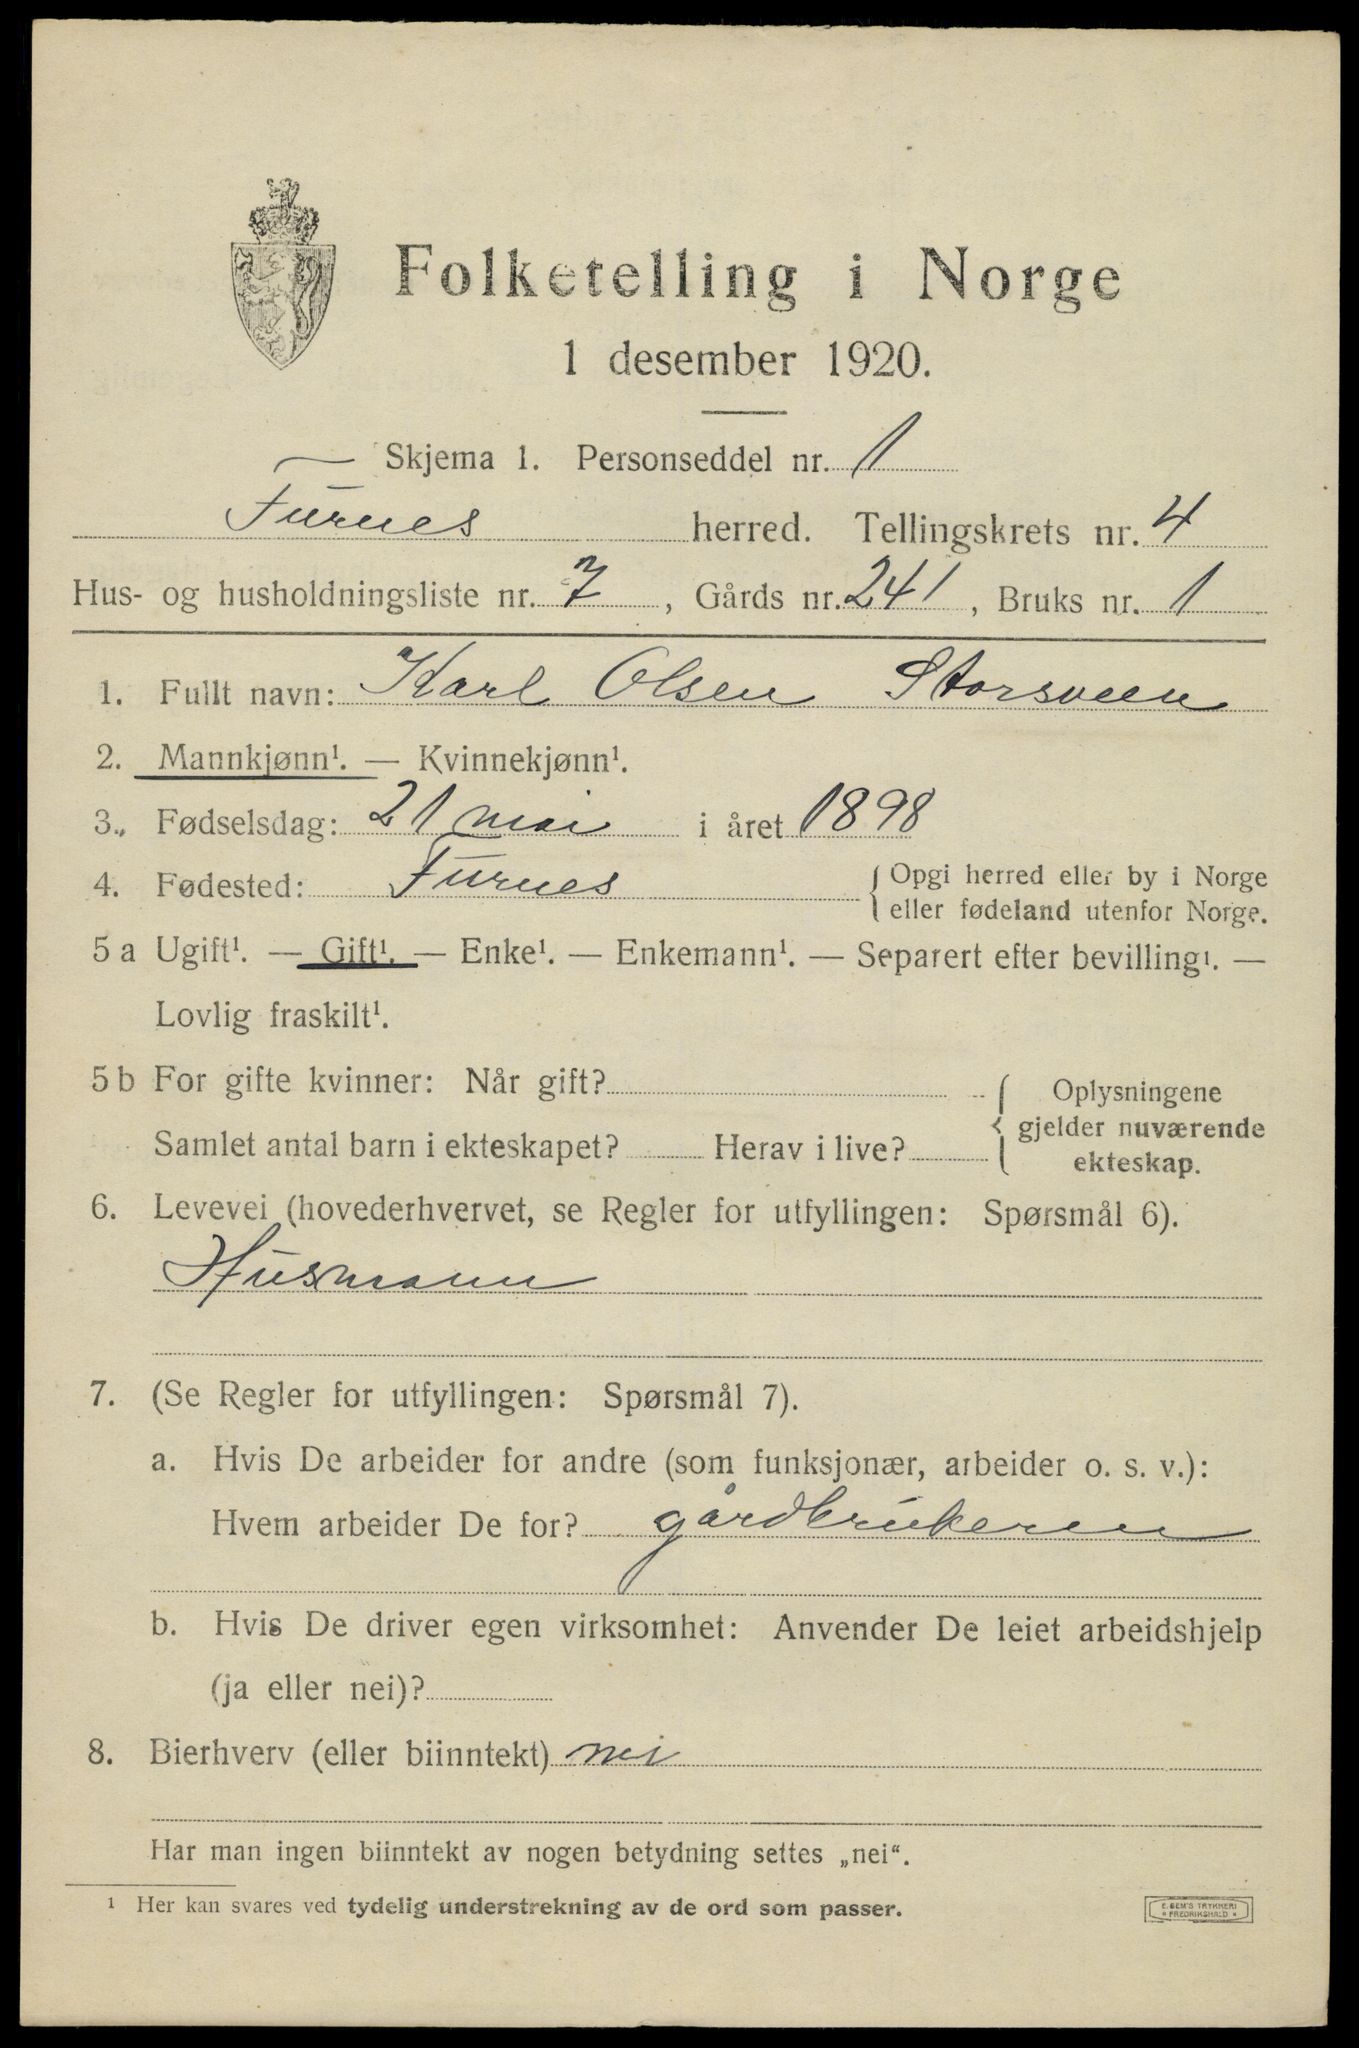 Folketelling i Norge
1 desember 1920.
Skjema 1. Personseddel nr. 1
Furnes herred. Tellingskrets nr. 4
Hus- og husholdningsliste nr. 7, Gårds nr. 241, Bruks nr. 1
1. Fullt navn: Karl Olsen Storsveen
2. Mannkjønn¹. — Kvinnekjønn¹.
3. Fødselsdag: 21 mai i året 1898
4. Fødested: Furnes { Opgi herred eller by i Norge
eller fødeland utenfor Norge.
5 a Ugift¹. — Gift¹. — Enke¹. — Enkemann¹. — Separert efter bevilling¹. —
Lovlig fraskilt¹.
5 b For gifte kvinner: Når gift?
Samlet antal barn i ekteskapet? Herav i live?
{ Oplysningene
gjelder nuværende
ekteskap.
6. Levevei (hovederhvervet, se Regler for utfyllingen: Spørsmål 6).
Husmann
7. (Se Regler for utfyllingen: Spørsmål 7).
a. Hvis De arbeider for andre (som funksjonær, arbeider o. s. v.):
Hvem arbeider De for? gårdbrukeren
b. Hvis De driver egen virksomhet: Anvender De leiet arbeidshjelp
(ja eller nei)?
8. Bierhverv (eller biinntekt) nei
Har man ingen biinntekt av nogen betydning settes „nei“.
¹ Her kan svares ved tydelig understrekning av de ord som passer.
E. SEM'S TRYKKERI
* FREDRIKSHALD *